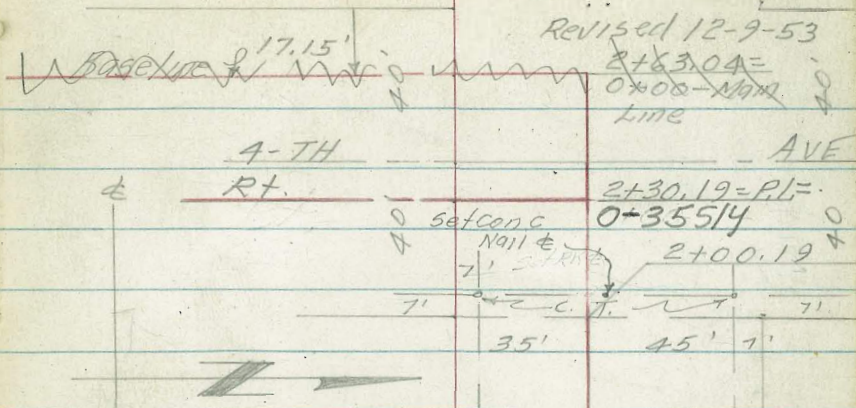 Revised 12-9-53
Baseline ℄ 17.15'
2+63.04=
0+00-Main
Line
40
40'
4-TH AVE
Rt.
2+30.19=P.I.=
0-35.51Y
40
40
℄
Set conc
Nail ℄
2+00.19
7'
7' C. T. 7'
35' 45' 7'